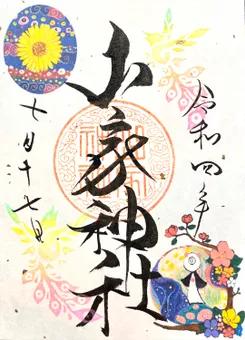 令和四年
山家神社
七月十七日